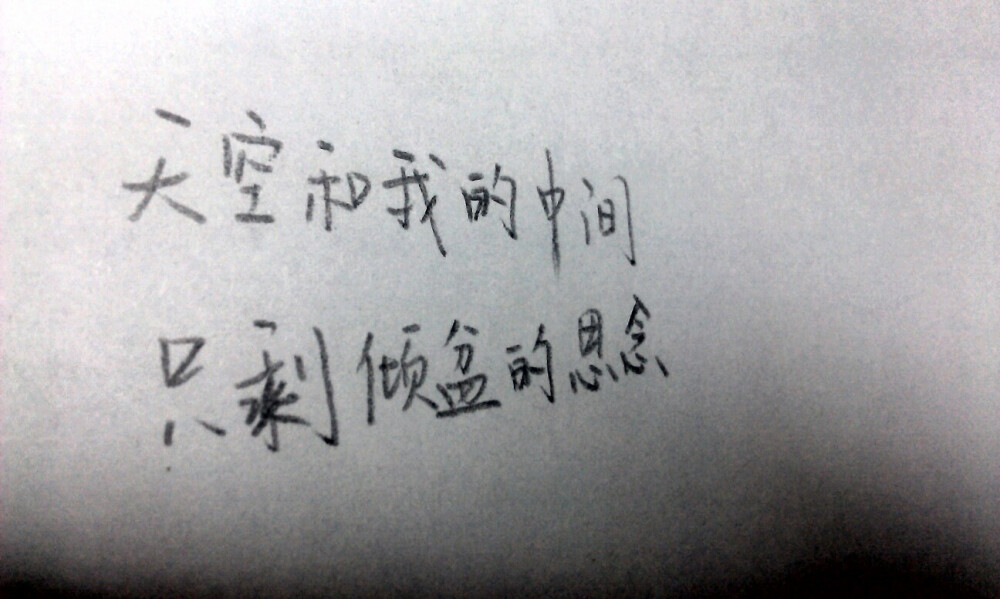 天空和我的中间
只剩倾盆的思念